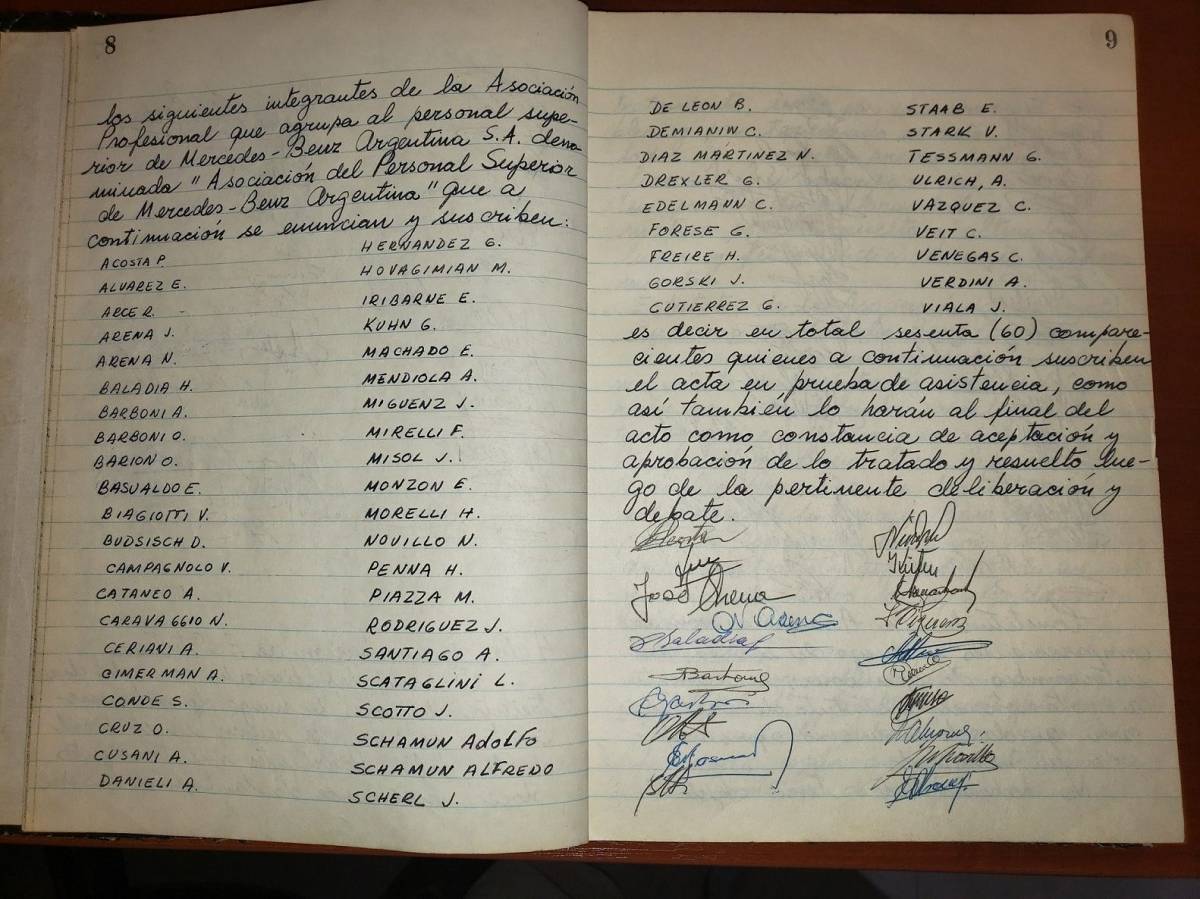 8
los siguientes integrantes de la Asociación
Profesional que agrupa al personal supe-
rior de Mercedes-Benz Argentina S.A. deno
minada "Asociación del Personal Superior
de Mercedes-Benz Argentina" que a
continuación se enuncian y suscriben:
ACOSTA P.
ALVAREZ E.
ARCE R.
ARENA J.
ARENA N.
BALADIA H.
BARBONI A.
BARBONI O.
BARION O.
BASUALDO E.
BIAGIOTTI V.
BUDSISCH D.
CAMPAGNOLO V.
CATANEO A.
CARAVAGGIO N.
CERIANI A.
CIMERMAN A.
CONDE S.
CRUZ O.
CUSANI A.
DANIELI A.
HERNANDEZ G.
HOVAGIMIAN M.
IRIBARNE E.
KUHN G.
MACHADO E.
MENDIOLA A.
MIGUENZ J.
MIRELLI F.
MISOL J.
MONZON E.
MORELLI H.
NOVILLO N.
PENNA H.
PIAZZA M.
RODRIGUEZ J.
SANTIAGO A.
SCATAGLINI L.
SCOTTO J.
SCHAMUN ADOLFO
SCHAMUN ALFREDO
SCHERL J.
9
DE LEON B.
DEMIANIW C.
DIAZ MARTINEZ N.
DREXLER G.
EDELMANN C.
FORESE G.
FREIRE H.
GORSKI J.
GUTIERREZ G.
STAAB E.
STARK V.
TESSMANN G.
ULRICH, A.
VAZQUEZ C.
VEIT C.
VENEGAS C.
VERDINI A.
VIALA J.
es decir en total sesenta (60) compare-
cientes quienes a continuación suscriben
el acta en prueba de asistencia, como
así también lo harán al final del
acto como constancia de aceptación y
aprobación de lo tratado y resuelto lue-
go de la pertinente deliberación y
debate.
José Arena
N. Arena